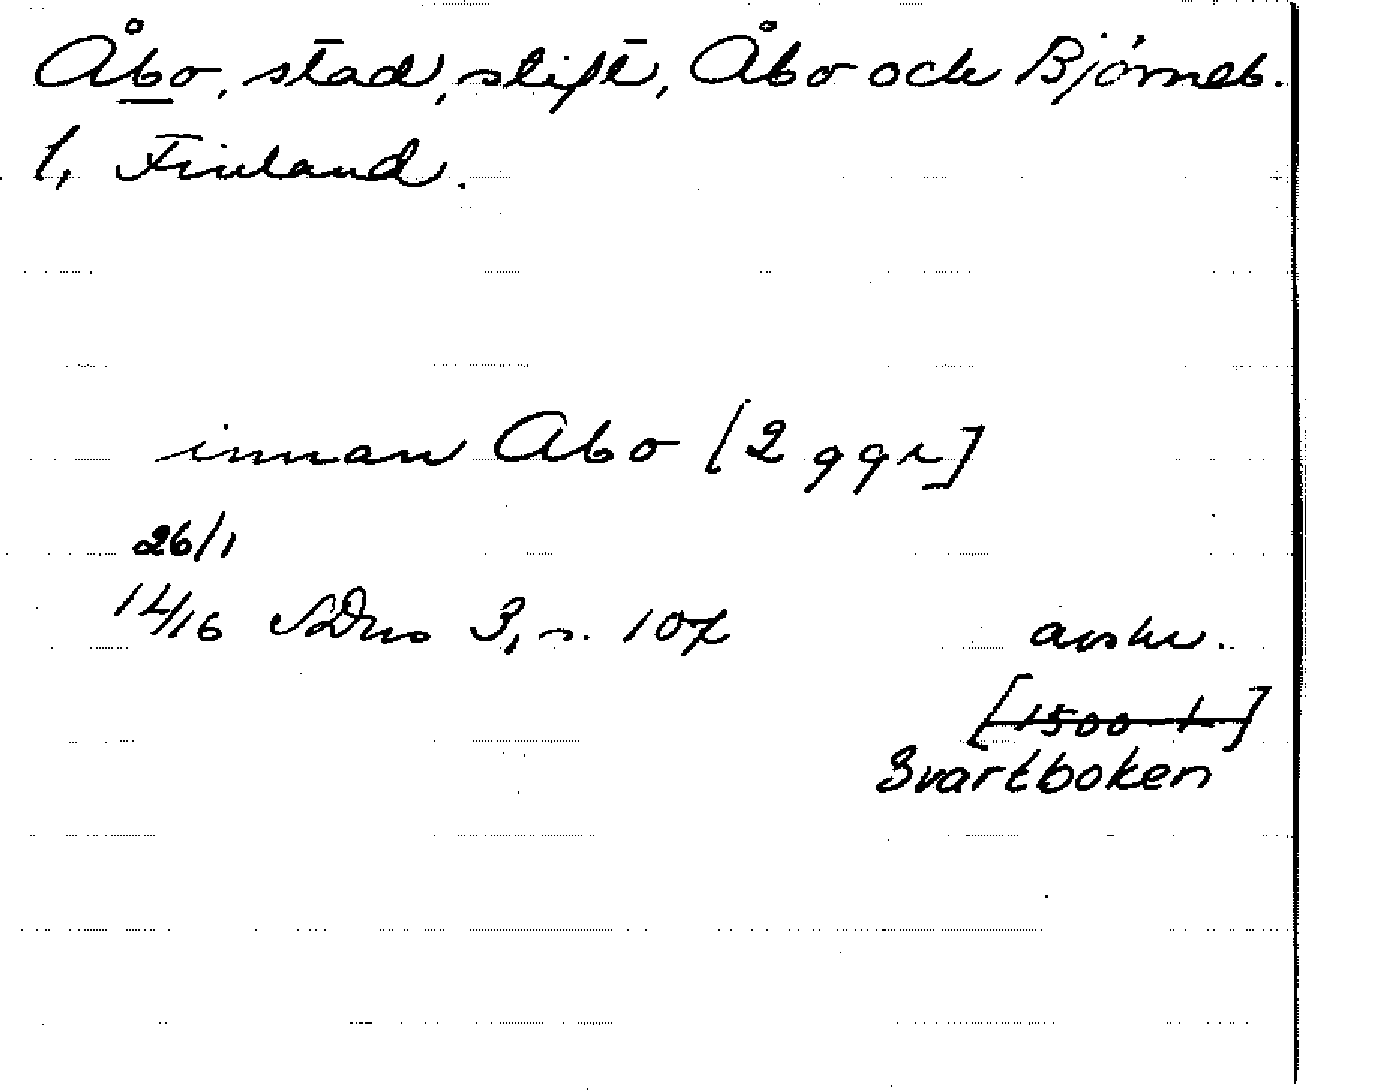 Åbo, stad, stift, Åbo och Björneb.
l, Finland.
innan Abo [2 ggr]
26/1
14/16 SDns 3, s. 107 avskr.
[1500-t]
Svartboken